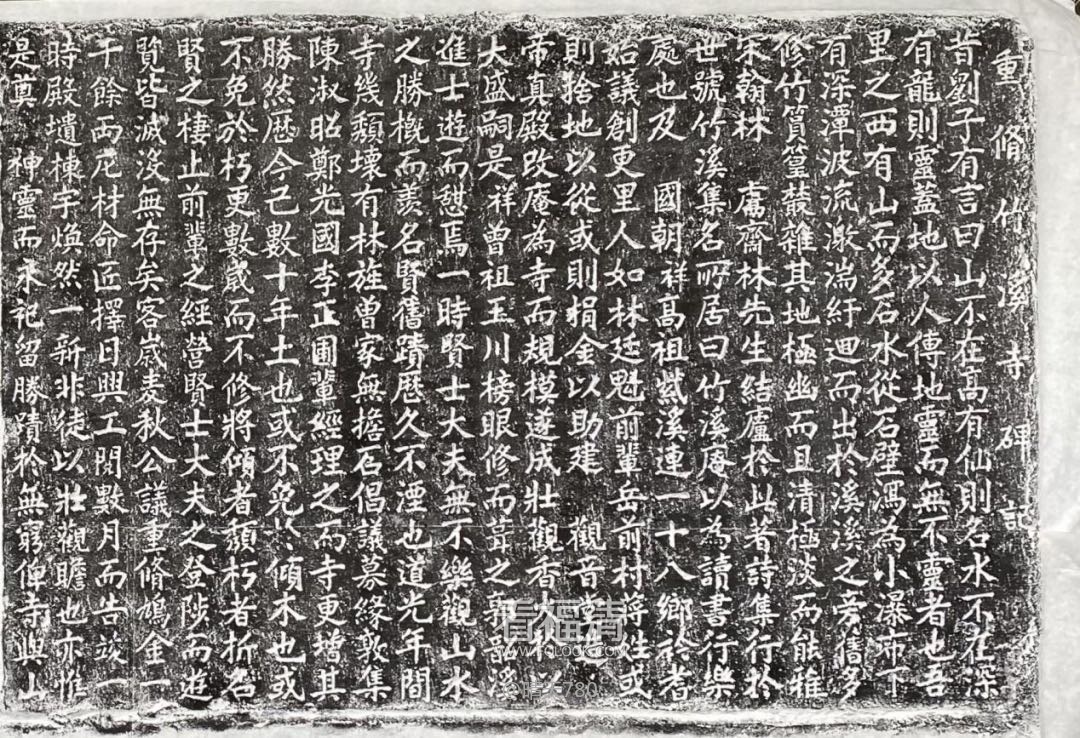 重脩竹溪寺碑記
昔劉子有言曰山不在高有仙則名水不在深
有龍則靈蓋地以人傳地靈而無不靈者也吾
里之西有山而多石水從石壁瀉為小瀑布下
有深潭波流漱湍紆迴而出於溪溪之旁舊多
修竹篔篁叢雜其地極幽而且清極淡而能雅
宋翰林 鬳齋林先生結廬於此著詩集行於
世號竹溪集名所居曰竹溪庵以為讀書行樂
處也及 國朝祥高祖紫溪連一十八鄉衿耆
始議創更里人如林廷魁前輩岳前村蔣姓或
則捨地以從或則捐金以助建 觀音
帝真殿改庵為寺而規模遂成壯觀香火
大盛嗣是祥曾祖玉川榜眼修而葺之 溪
進士遊而憇焉一時賢士大夫無不樂觀山水
之勝概而羨名賢舊蹟歷久不湮也道光年間
寺幾頹壞有林旌曾家無擔石倡議募緣敦集
陳淑昭鄭光國李正圃輩經理之而寺更增其
勝然歷今已數十年土也或不免於傾木也或
不免於朽更數歲而不修將傾者頹朽者折名
賢之棲止前輩之經營賢士大夫之登陟而遊
覽皆滅沒無存矣客歲麦秋公議重脩鳩金一
千餘兩庀材命匠擇日興工閱數月而告竣一
時殿墻棟宇煥然一新非徒以壯觀瞻也亦惟
是奠 神靈而永祀留勝蹟於無窮俾寺與山
看福清
WWW.FQLOOK.COM